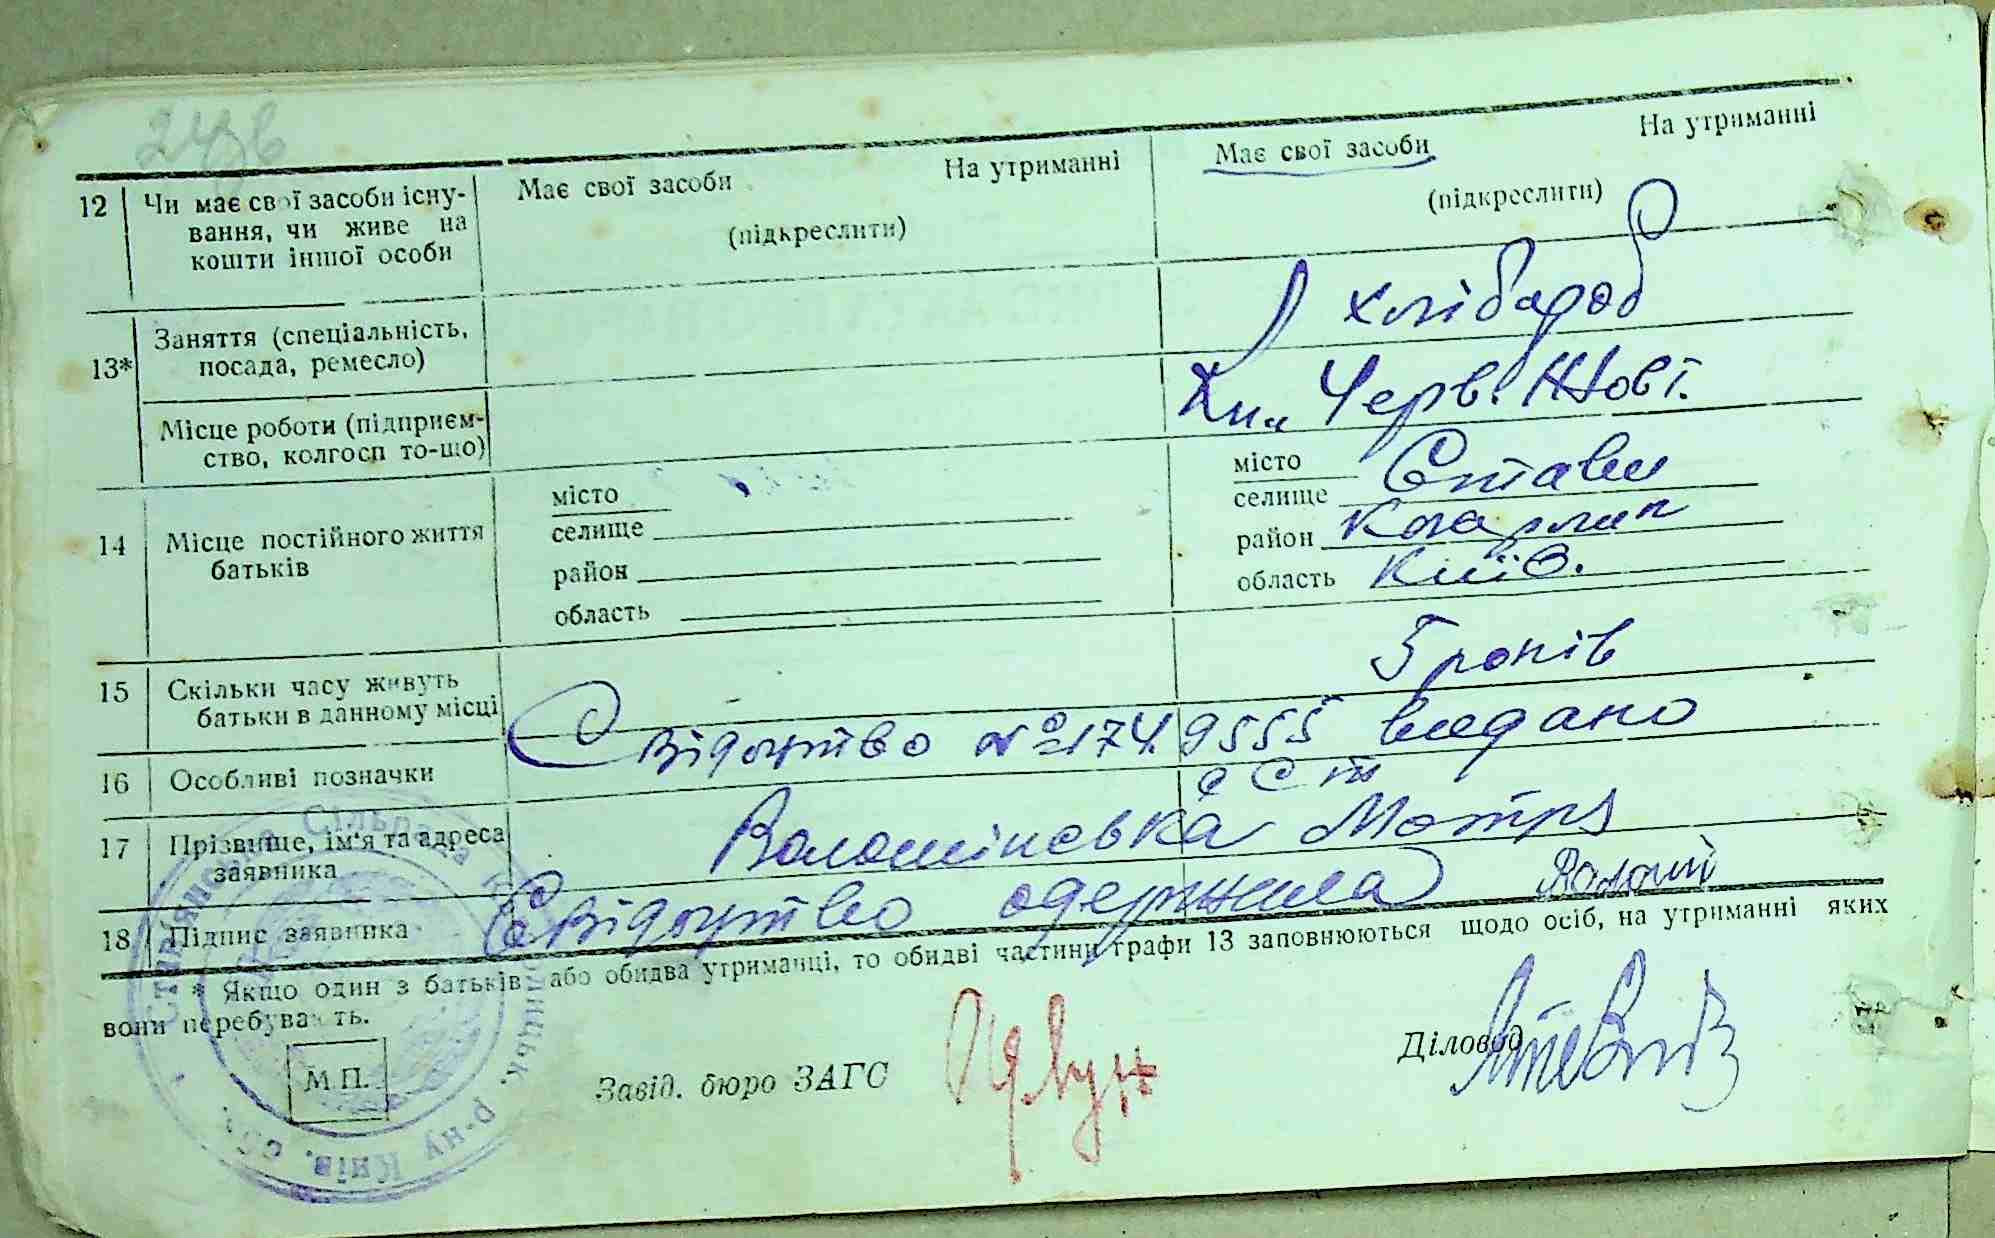 12 Чи має свої засоби існу-
вання, чи живе на
кошти іншої особи
Має свої засоби На утриманні
(підкреслити)
Має свої засоби На утриманні
(підкреслити)
13* Заняття (спеціальність,
посада, ремесло)
хлібороб
Місце роботи (підприєм-
ство, колгосп то-що)
Черв. Жовт.
14 Місце постійного життя
батьків
місто
селище
район
область
місто
селище Стави
район Кагарлик
область Київ.
15 Скільки часу живуть
батьки в данному місці
5 років
16 Особливі позначки
Свідоцтво № 174.9555 видано
17 Прізвище, ім'я та адреса
заявника
Волошиновка Мотря
18 Підпис заявника
Свідоцтво одержила Волош
* Якщо один з батьків або обидва утриманці, то обидві частини графи 13 заповнюються щодо осіб, на утриманні яких
вони перебувають.
М.П.
Завід. бюро ЗАГС
Діловод
Сільрада р-ну Київ. обл.